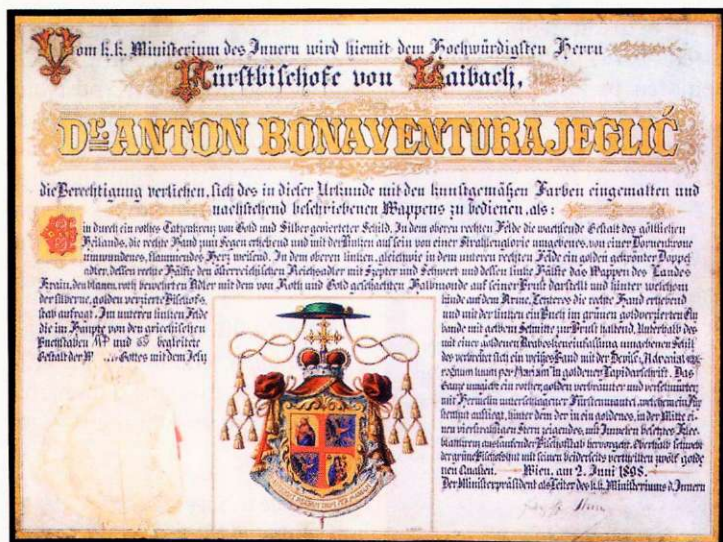 Vom k.k. Ministerium des Innern wird hiemit dem Hochwürdigsten Herrn
Fürstbischofe von Laibach,
Dr. ANTON BONAVENTURA JEGLIČ
die Berechtigung verliehen, sich des in dieser Urkunde mit den kunstgemäßen Farben eingemalten und
nachstehend beschriebenen Wappens zu bedienen, als:
Ein durch ein rothes Tatzenkreuz von Gold und Silber gevierteter Schild. In dem oberen rechten Felde die wachsende Gestalt des göttlichen
Heilands, die rechte Hand zum Segen erhebend und mit der Linken auf sein von einer Strahlenglorie umgebenes, von einer Dornenkrone
umwundenes, flammendes Herz weisend. In dem oberen linken, gleichwie in dem unteren rechten Felde ein golden gekrönter Doppel
adler, dessen rechte Hälfte den österreichischen Reichsadler mit Szepter und Schwert und dessen linke Hälfte das Wappen des Landes
Krain, den blauen, roth bewehrten Adler mit dem von Roth und Gold geschachten Halbmonde auf seiner Brust darstellt und hinter welchem
der silberne, golden verzierte Bischofs-
stab aufragt. Im unteren linken Felde
die im Haupte von den griechischen
Buchstaben und begleitete
Gestalt der Gottes mit dem Jesu
kinde auf dem Arme, Letzteres die rechte Hand erhebend
und mit der linken ein Buch im grünen goldverzierten Ein
bande mit gelbem Schnitte zur Brust haltend. Unterhalb des
mit einer goldenen Randeinfassung umgebenen Schil
des verbreitet sich ein weißes Band mit der Devise: Adveniat
regnum tuum per Mariam in goldener Lapidarschrift. Das
Ganze umgibt ein rother, golden verbrämter und verschnürter,
mit Hermelin unterschlagener Fürstenmantel, welchem ein Für
stenhut aufliegt, hinter dem der in ein goldenes, in der Mitte ei
nen vierstrahligen Stern zeigendes, mit Juwelen besetztes Klee
blattkreuz auslaufende Bischofstab hervorgeht. Oberhalb schwebt
der grüne Bischofshut mit seinen beiderseits vertheilten zwölf golde
nen Quasten. Wien, am 2. Juni 1898.
Der Ministerpräsident als Leiter des k.k. Ministeriums d. Innern